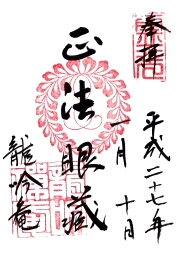 奉拝
平成二十七年
一月 十日
正法眼蔵
龍吟庵